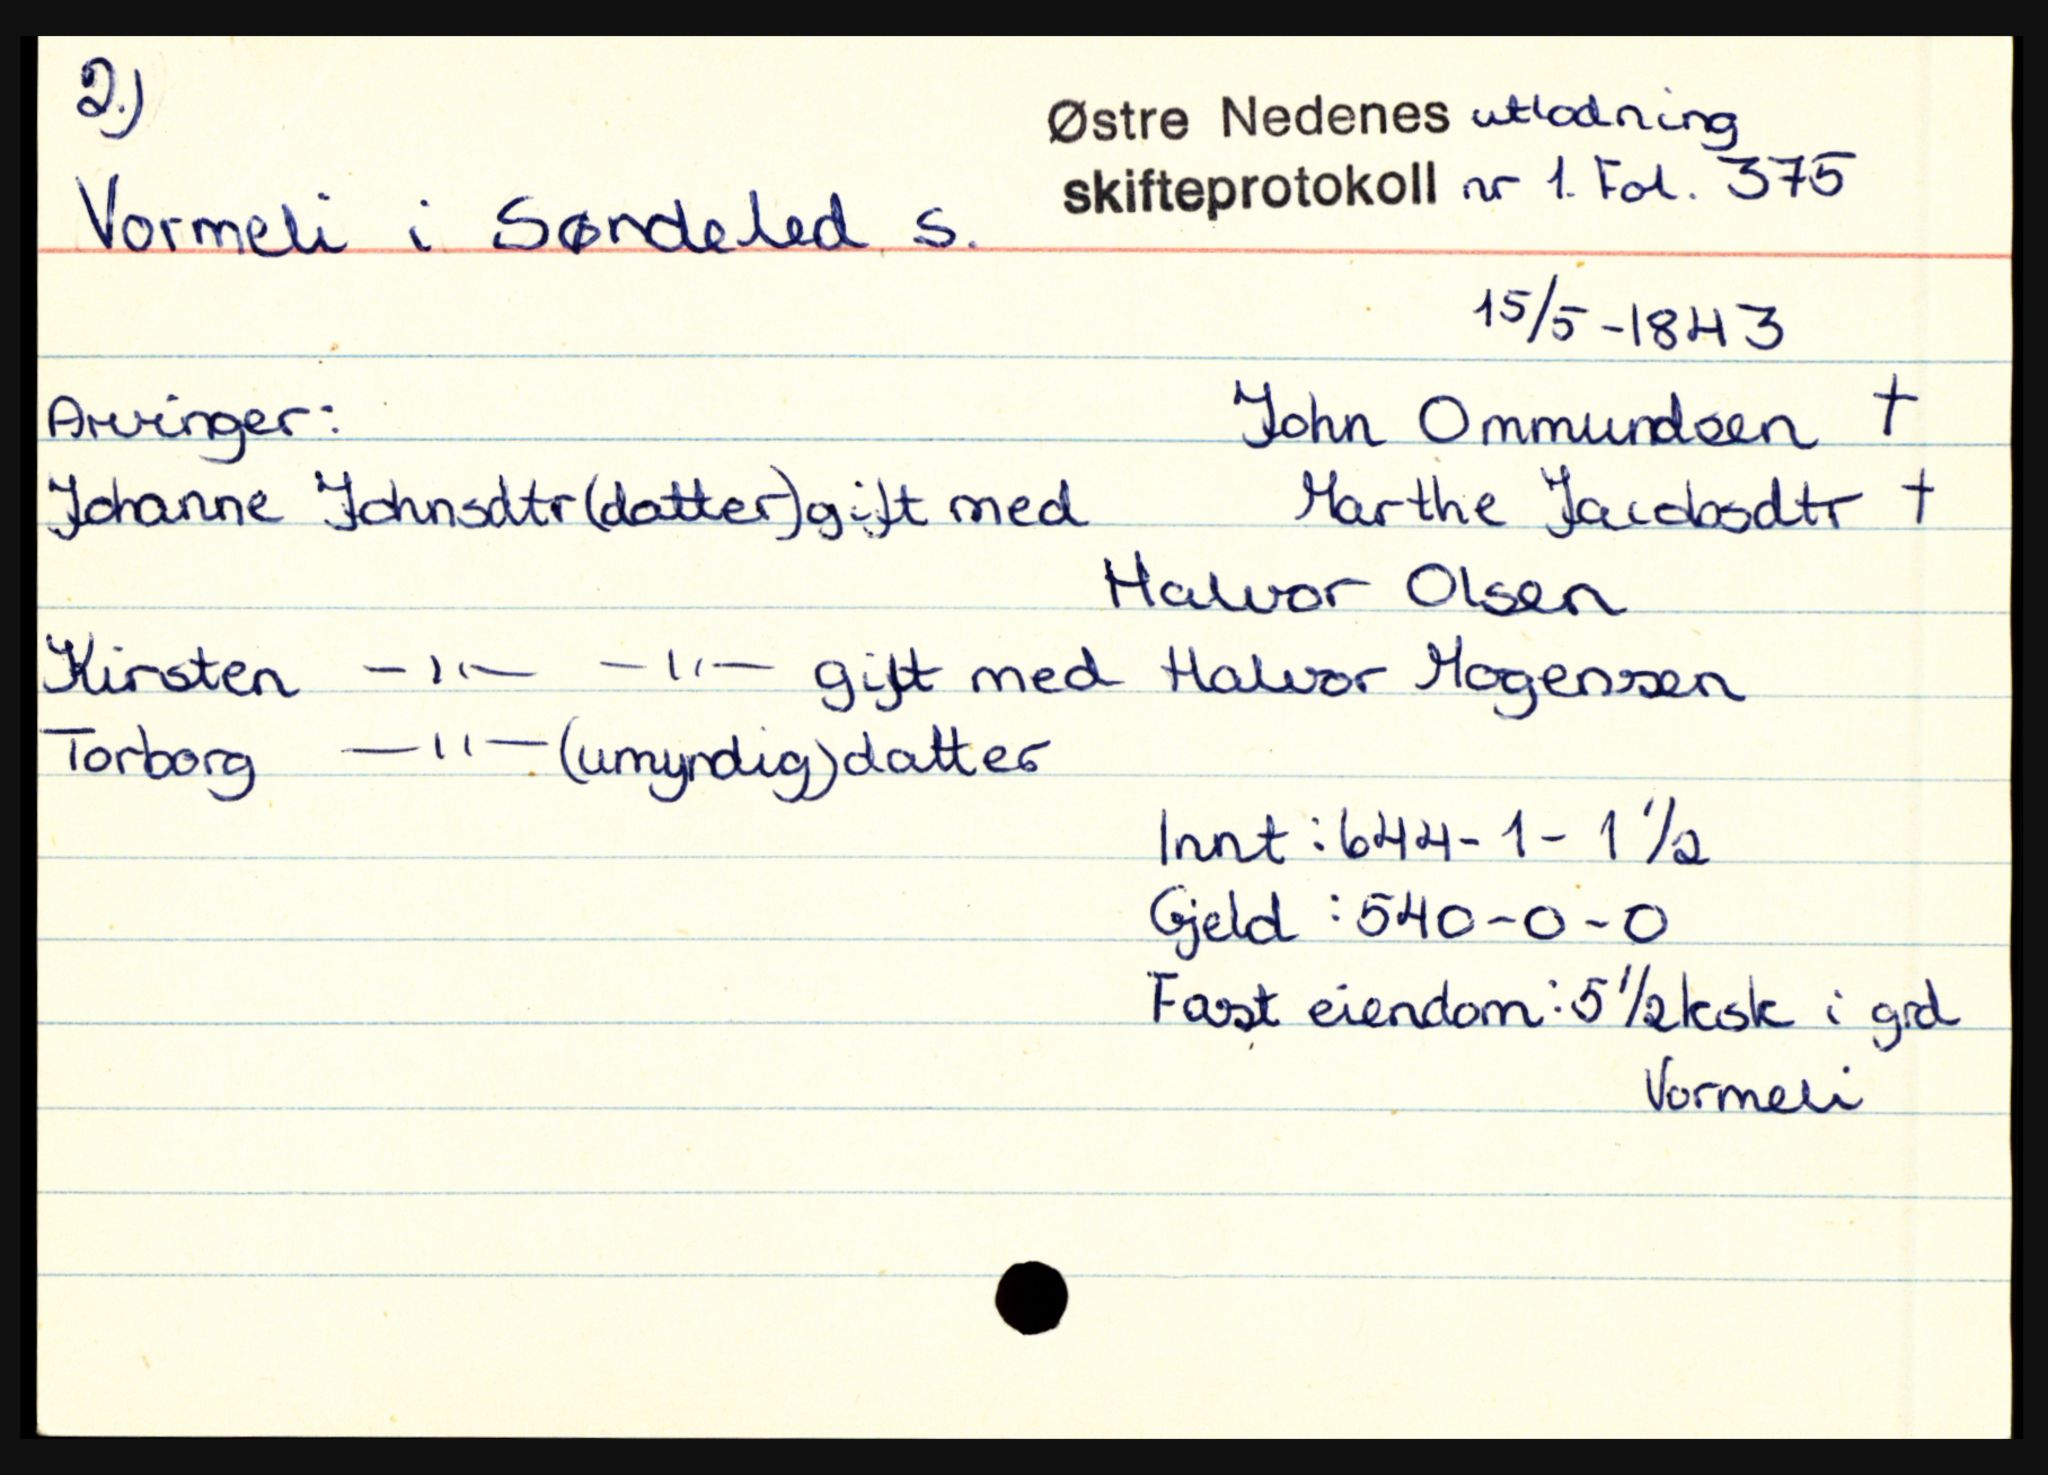 2.)
Østre Nedenes utlodning
skifteprotokoll nr 1. Fol. 375
Vormeli i Søndeled s.
15/5-1843
Arvinger: John Ommundsen †
Johanne Johnsdtr (datter) gift med Marthe Jacobsdtr †
Halvor Olsen
Kirsten —"— —"— gift med Halvor Mogenssen
Torborg —"— (umyndig) datter
Innt: 644-1-1 1/2
Gjeld: 540-0-0
Fast eiendom: 5 1/2 ksk i grd
Vormeli